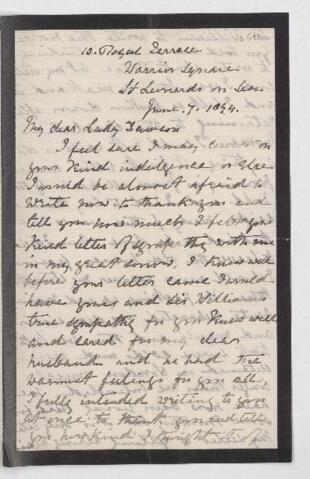 10. Royal Terrace
Warrior Square
St Leonards on Sea
June. 7. 1894.
My dear Lady Dawson
I feel sure I may count on
your kind indulgence or else
I would be almost afraid to
write now to thank you and
tell you how much I felt your
kind letter of sympathy with me
in my great sorrow, I knew well
before your letter came I would
have yours and Sir William's
true sympathy for you knew well
and cared for my dear
husband and he had the
warmest feelings for you all.
I fully intended writing to you
at once to thank you and tell
you how kind I thought it of